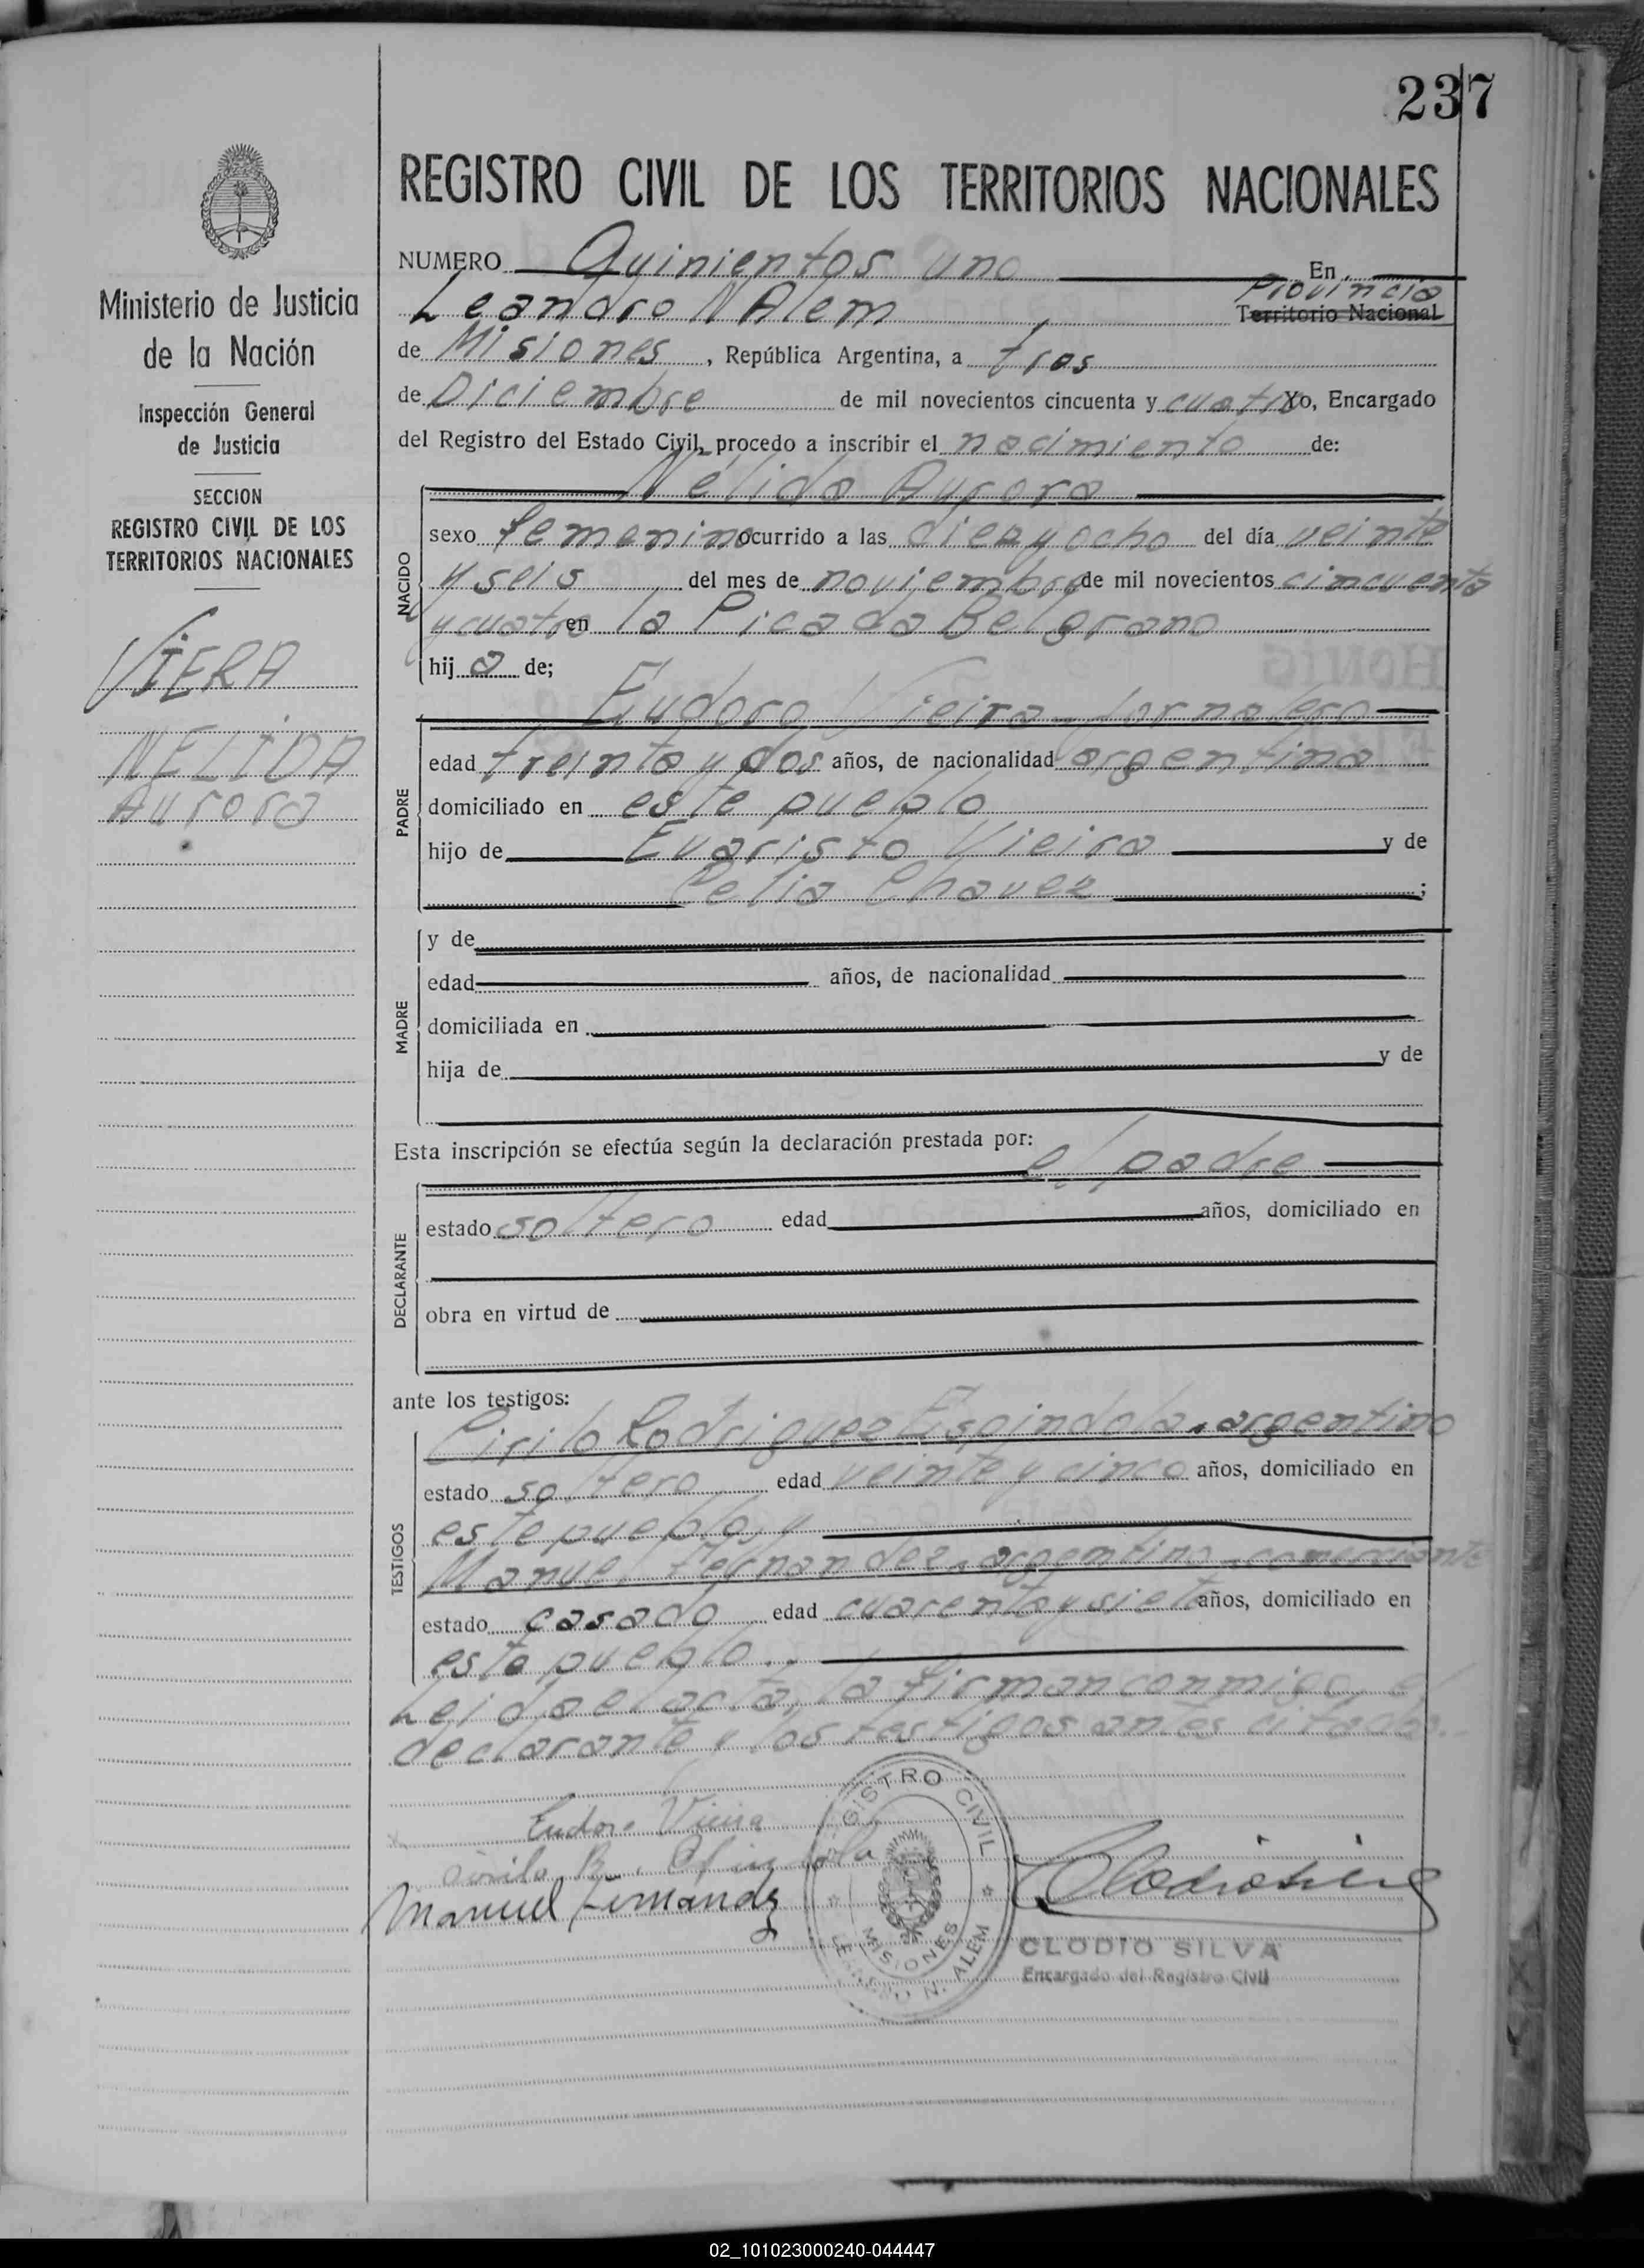 237
REGISTRO CIVIL DE LOS TERRITORIOS NACIONALES
Ministerio de Justicia
de la Nación
Inspección General
de Justicia
SECCION
REGISTRO CIVIL DE LOS
TERRITORIOS NACIONALES
VIERA
NELIDA
Aurora
NUMERO Quinientos uno En
Leandro N Alem Provincia
Territorio Nacional
de Misiones, República Argentina, a tres
de Diciembre de mil novecientos cincuenta y cuatro Yo, Encargado
del Registro del Estado Civil, procedo a inscribir el nacimiento de:
NACIDO
Nélida Aurora
sexo femenino ocurrido a las diez y ocho del día veinte
y seis del mes de noviembre de mil novecientos cincuenta
y cuatro en la Picada Belgrano
hija de;
PADRE
Eudoro Vieira - Jornalero
edad treinta y dos años, de nacionalidad argentina
domiciliado en este pueblo
hijo de Evaristo Vieira y de
Celia Chavez;
MADRE
y de
edad años, de nacionalidad
domiciliada en
hija de y de
Esta inscripción se efectúa según la declaración prestada por:
el padre
DECLARANTE
estado soltero edad años, domiciliado en
obra en virtud de
ante los testigos:
TESTIGOS
Cirilo Rodriguez Espindola, argentino
estado soltero edad veinte y cinco años, domiciliado en
este pueblo, y
Manuel Fernandez, argentino, comerciante
estado casado edad cuarenta y siete años, domiciliado en
este pueblo..
Leida el acta, la firman conmigo, el
declarante y los testigos antes citados..
Eudoro Vieira
Cirilo R. Espindola
Manuel Fernandez
REGISTRO CIVIL
MISIONES
LEANDRO N. ALEM
CLODIO SILVA
Encargado del Registro Civil
02_101023000240-044447